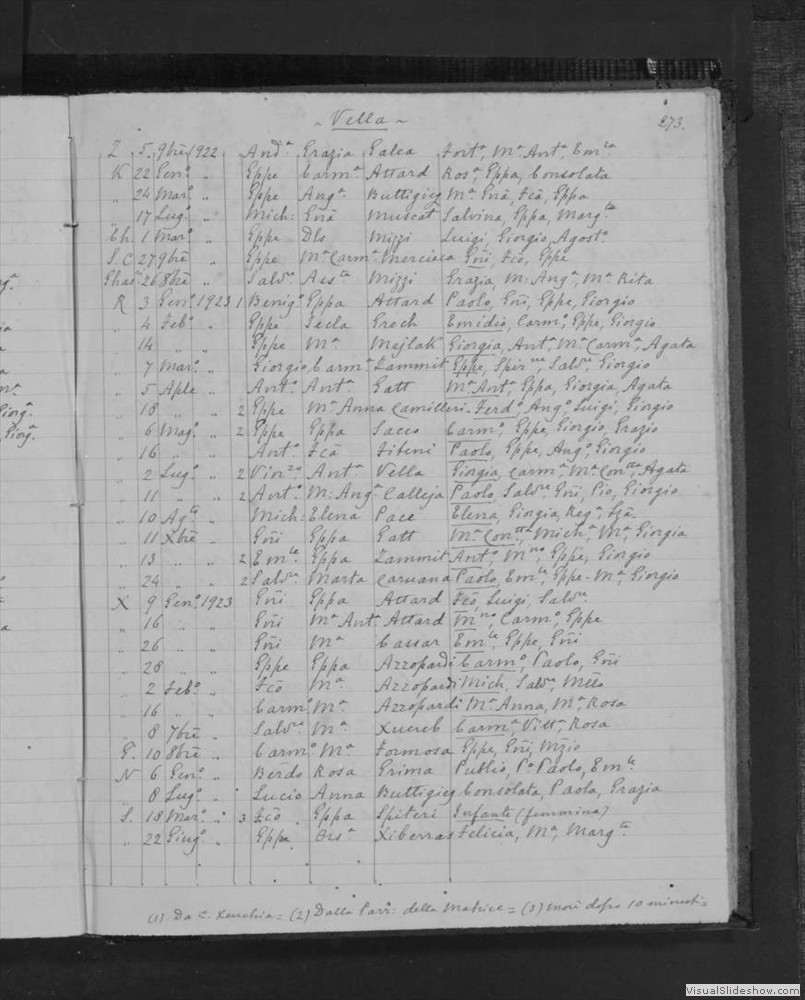 ~ Vella ~
273.
Z 5 9bre 1922 Andª Grazia Galea Fortª, Mª Antª, Emla
K 22 Genº " Eppe Carmª Attard Rosª, Eppa, Consolata
" 24 Marº " Eppe Angª Buttigieg Mª Gnā, Fcā, Eppa
" 17 Lugº " Mich: Gnā Muscat Salvina, Eppa, Margta
Ch. 1 Marº " Eppe Dls Mizzi Luigi, Giorgio, Agostº
S.C 27 9bre " Eppe Mª Carmª Mercieca Gñi, Fcō, Eppe
Ghasri 26 8bre " Salvre Assta Mizzi Grazia, M. Angª, Mª Rita
R 3 Genº 1923 1 Benigº Eppa Attard Paolo, Gñi, Eppe, Giorgio
" 4 Febº " Eppe Tecla Grech Emidio, Carmº, Eppe, Giorgio
" 14 " " Eppe Mª Mejlak Giorgia, Antª, Mª Carmª, Agata
" 7 Marº " Giorgio Carmª Zammit Eppe, Spirne, Salvre, Giorgio
" 5 Aple " Antº Antª Gatt Mª Antª, Eppa, Giorgia, Agata
" 18 " " 2 Eppe Mª Anna Camilleri Ferdº, Angº, Luigi, Giorgio
" 6 Magº " 2 Eppe Eppa Sacco Carmº, Eppe, Giorgio, Grazio
" 16 " " Antº Fcā Fiteni Paolo, Eppe, Angº, Giorgio
" 2 Lugº " 2 Vinzo Antª Vella Giorgia, Carmª, Mª Contta, Agata
" 11 " " 2 Antº M. Angª Calleja Paolo, Salvre, Gñi, Pio, Giorgio
" 10 Agto " Mich: Elena Pace Elena, Giorgia, Regª, Fcā
" 11 Xbre " Gñi Eppa Gatt Mª Contta, Michª, Mª, Giorgia
" 13 " " 2 Emle Eppa Zammit Antº, Mno, Eppe, Giorgio
" 24 " " 2 Salvre Marta Caruana Paolo, Emle, Eppe-Mª, Giorgio
X 9 Genº 1923 Gñi Eppa Attard Fcō, Luigi, Salvre
" 16 " " Gñi Mª Antª Attard Mno, Carmº, Eppe
" 26 " " Gñi Mª Cassar Emle, Eppe, Gñi
" 28 " " Eppe Eppa Azzopardi Carmº, Paolo, Gñi
" 2 Febº " Fcō Mª Azzopardi Mich, Salvre,
" 16 " " Carmº Mª Azzopardi Mª Anna, Mª, Rosa
" 8 7bre " Salvre Mª Xuereb Carmª, Vittª, Rosa
G. 10 8bre " Carmº Mª Formosa Eppe, Gñi,
N 6 Genº " Berdo Rosa Grima Publio, Po Paolo, Emle
" 8 Lugº " Lucio Anna Buttigieg Consolata, Paola, Grazia
S. 18 Marº " 3 Fcō Eppa Spiteri Infante (femmina)
" 22 Giugº " Eppe Orsª Xiberras Felicia, Mª, Margta
(1) Da C. Xeuchia = (2) Dalla Parr: della Matrice = (3) morì dopo 10 minuti =
VisualSlideshow.com